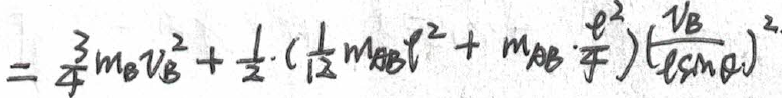 = \frac{3}{4} m_B v_B^2 + \frac{1}{2} \cdot ( \frac{1}{12} m_{AB} l^2 + m_{AB} \cdot \frac{l^2}{4} ) ( \frac{v_B}{l \sin \theta} )^2